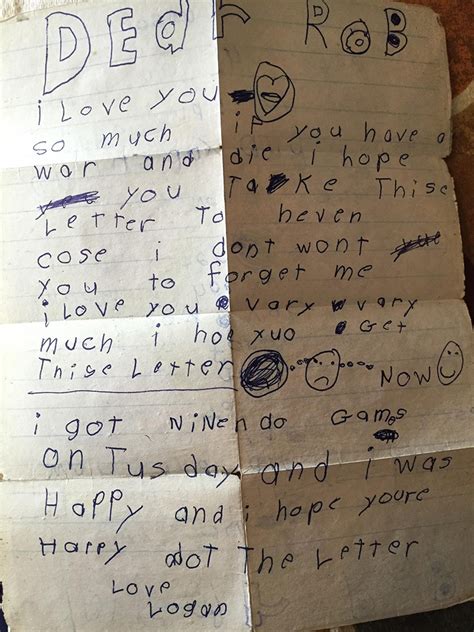 DEar ROB
i Love you
so much if you have a
war and die i hope
you Take Thise
Letter To heven
cose i dont wont
you to forget me
i Love you vary vary
much i hoe xuo Get
Thise Letter NOW
i got NiNendo Games
ON Tusday and i was
Happy and i hope youre
Happy abot The Letter
Love
Logan